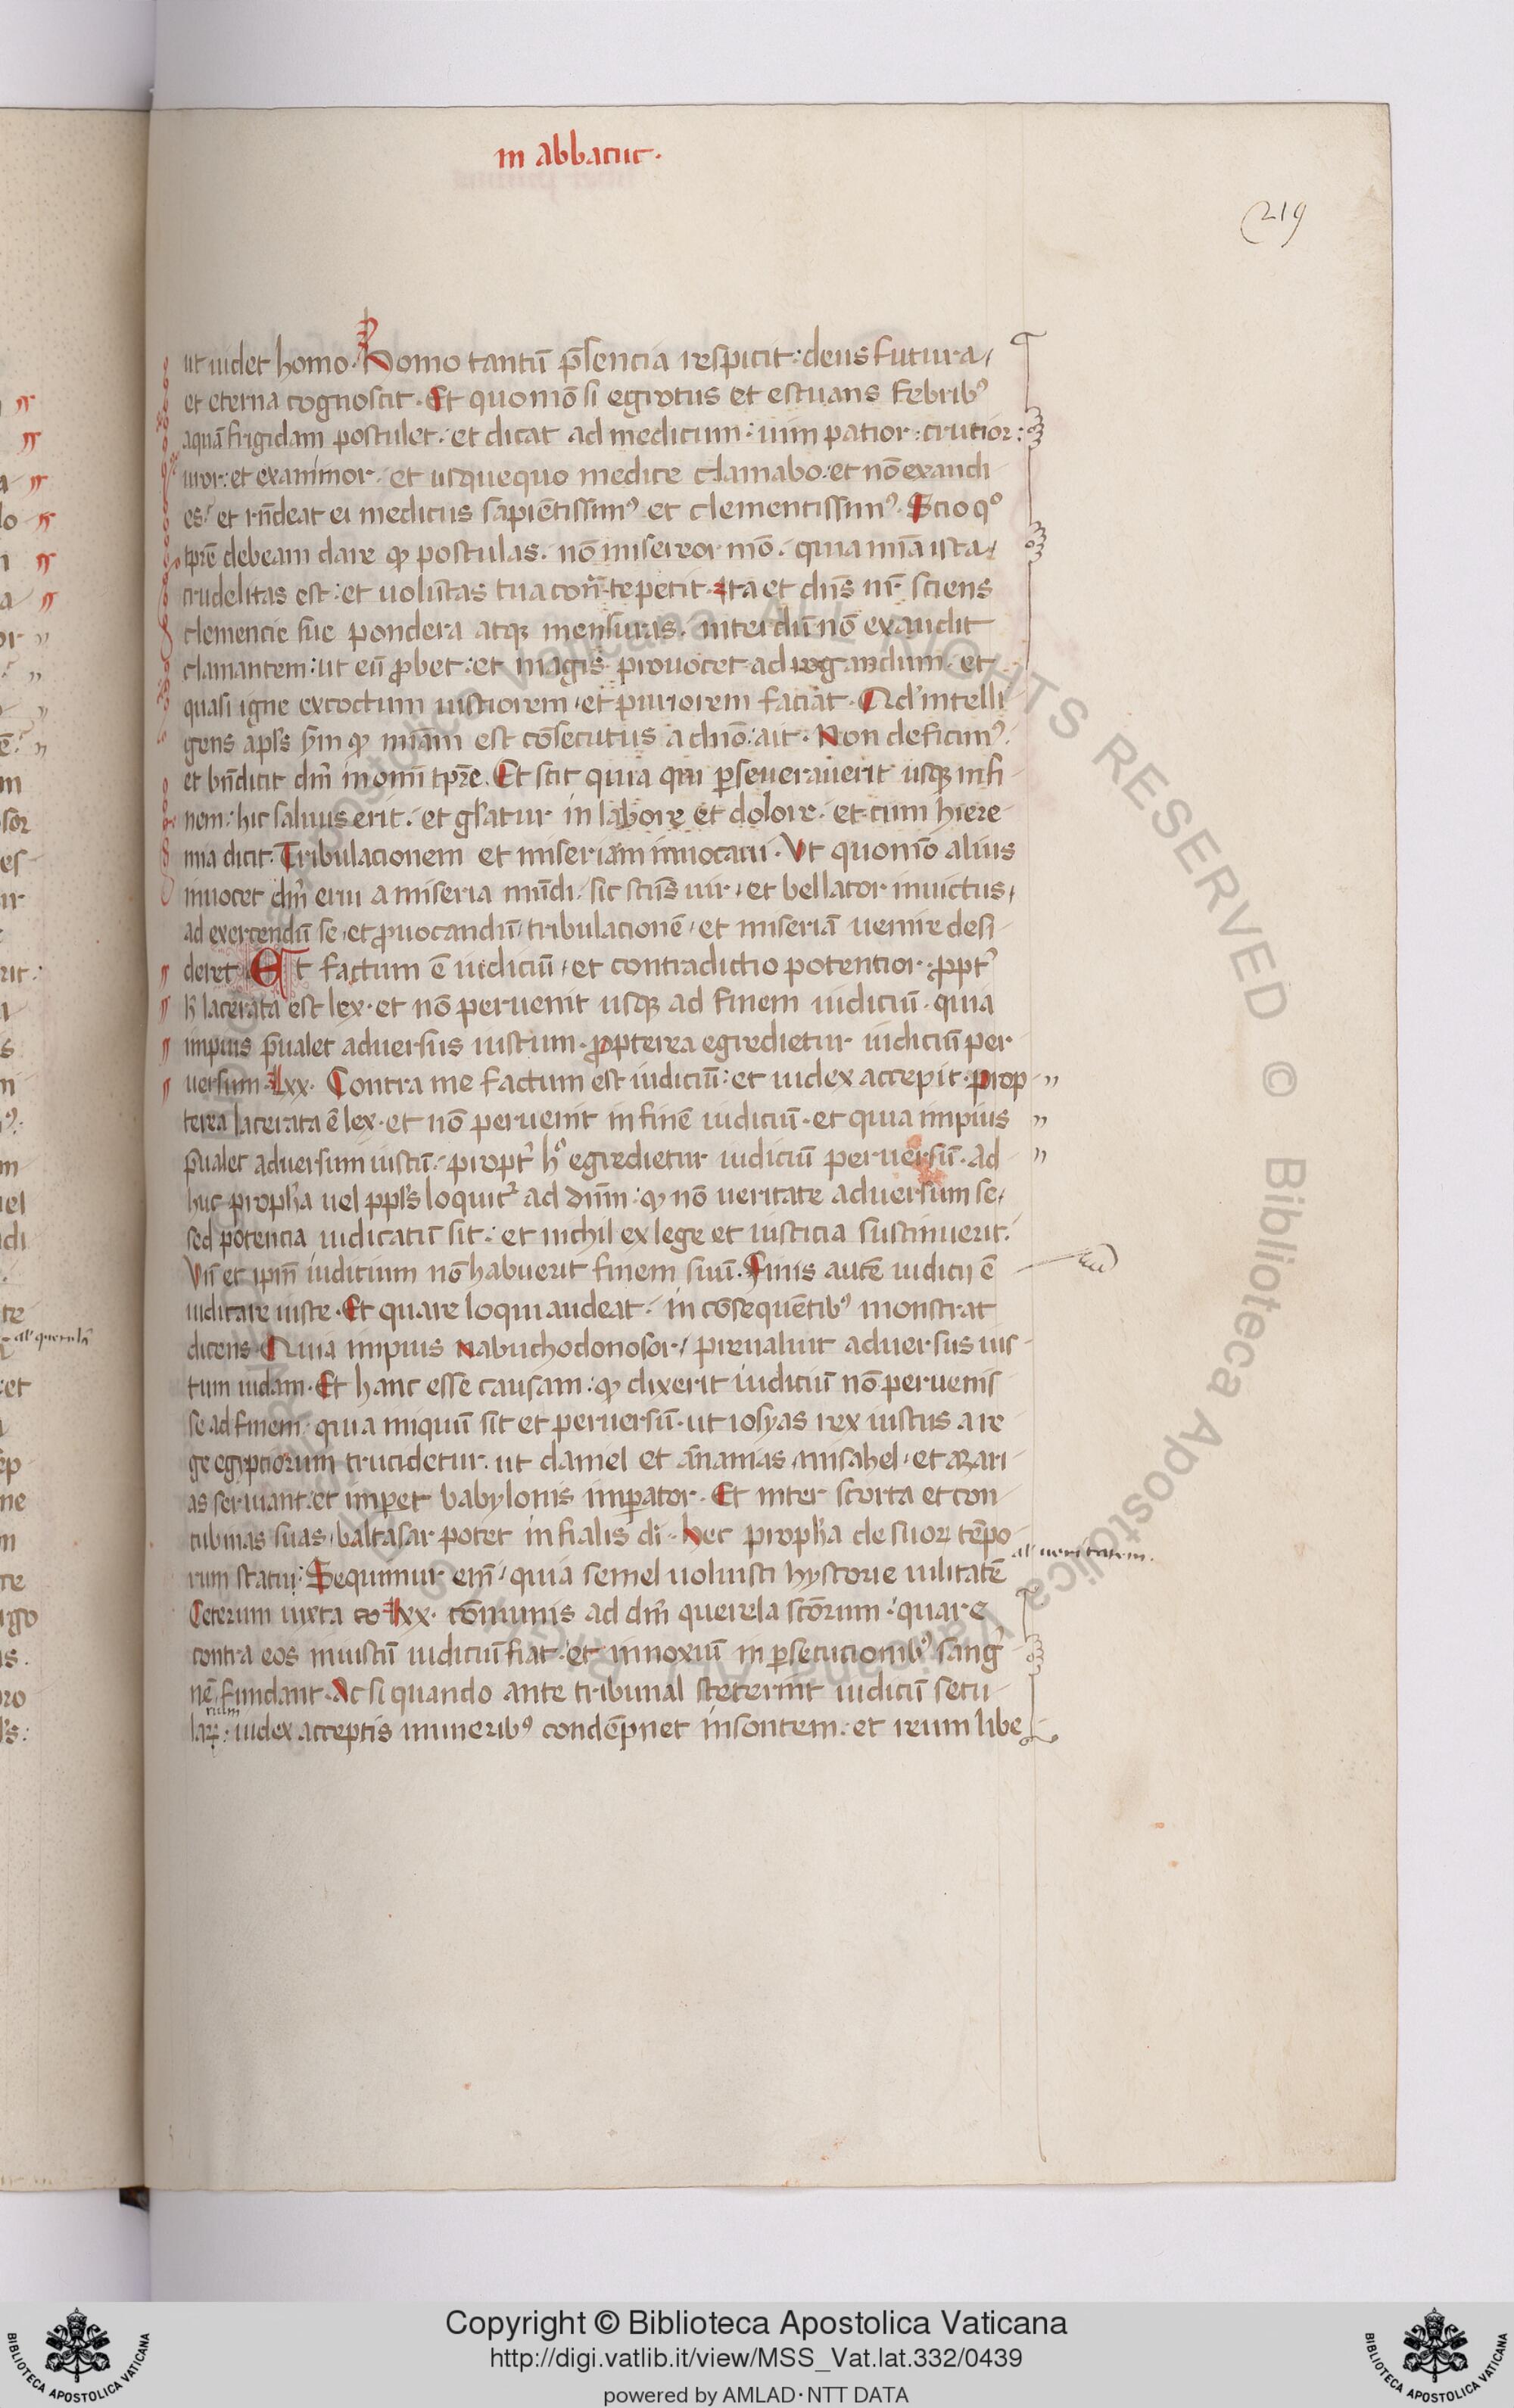 in abbacuc.
219
ut uidet homo. Homo tantū p̄sencia respicit: deus futura,
et eterna cognoscit. Et quomō si egrotus et estuans febribꝰ
aquā frigidam postulet: et dicat ad medicum: uim patior: crucior:
uror: et exanimor. et usquequo medice clamabo: et nō exaudi
es: et rn̄deat ei medicus sapiētissimꝰ et clementissimꝰ. Scio qͦ
tp̄re debeam dare qꝫ postulas. nō misereor mō. quia mīa ista,
crudelitas est: et uolūtas tua cont̄ te petit. Ita et dn̄s nr̄ sciens
clemencie sue pondera atqꝫ mensuras. interdū nō exaudit
clamantem: ut eū ꝓbet: et magis prouocet ad rogandum. et
quasi igne excoctum iustiorem, et puriorem faciat. Qd' intelli
gens apl̄s ꝑm qꝫ mīam est cōsecutus a dn̄o: ait. Non deficimꝰ:
et bn̄dicit dn̄m in omī tp̄re. Et scit quia qui ꝑseuerauerit usqꝫ in fi
nem: hic saluus erit. et gl̄iatur in labore et dolore. et cum hiere
mia dicit. Tribulacionem et miseriam inuocaui. Vt quomō alius
inuocet dn̄m erui a miseria mūdi. sic scūs uir, et bellator inuictus,
ad exercendū se, et ꝓuocandū, tribulacionē, et miseriā uenire desi
deret. Et factum ē iudiciū, et contradictio potentior. ꝓpt̉
h̄ lacerata est lex. et nō peruenit usqꝫ ad finem iudiciū. quia
impius p̄ualet aduersus iustum. ꝓpterea egredietur iudiciū per
uersum. Lxx. Contra me factum est iudiciū: et iudex accepit. prop
terea lacerata ē lex. et nō peruenit in finē iudiciū. et quia impius
p̄ualet aduersum iustū. propt̉ hͦ egredietur iudiciū peruersū. Ad
huc propħa uel ppl̄s loquit̉ ad dn̄m: qꝫ nō ueritate aduersum se,
sed potencia iudicatū sit: et nichil ex lege et iusticia sustinuerit.
Vn̄ et ip̄m iudicium nō habuerit finem suū. Finis autē iudicij ē
iudicare iuste. Et quare loqui audeat. in cōsequētibꝰ monstrat
dicens. Quia impius Nabuchodonosor, preualuit aduersus ius
tum iudam. Et hanc esse causam: qꝫ dixerit iudiciū nō peruenis
se ad finem. quia iniquū sit et peruersū. ut iosyas rex iustus a re
ge egyptiorum trucidetur. ut daniel et ānanias, misahel, et azari
as seruiant: et imꝑet babylonis imꝑator. Et inter scorta et con
cubinas suas, baltasar potet in fialis di. hec propħa de suorū tēpo
rum statu. Sequimur em̄, quia semel uoluisti hystorie uilitatē
al' ueritatem.
Ceterum iuxta Lxx. cōmunis ad dn̄m querela scōrum. quare
contra eos iniustū iudiciū fiat. et innoxiū in ꝑsecucionibꝰ sangꝰ
nē fundant. Ac si quando ante tribunal steterint iudiciū secu
larꝫ: iudex acceptis muneribꝰ condēpnet insontem. et reum libe
al' querula
Copyright © Biblioteca Apostolica Vaticana
http://digi.vatlib.it/view/MSS_Vat.lat.332/0439
powered by AMLAD·NTT DATA